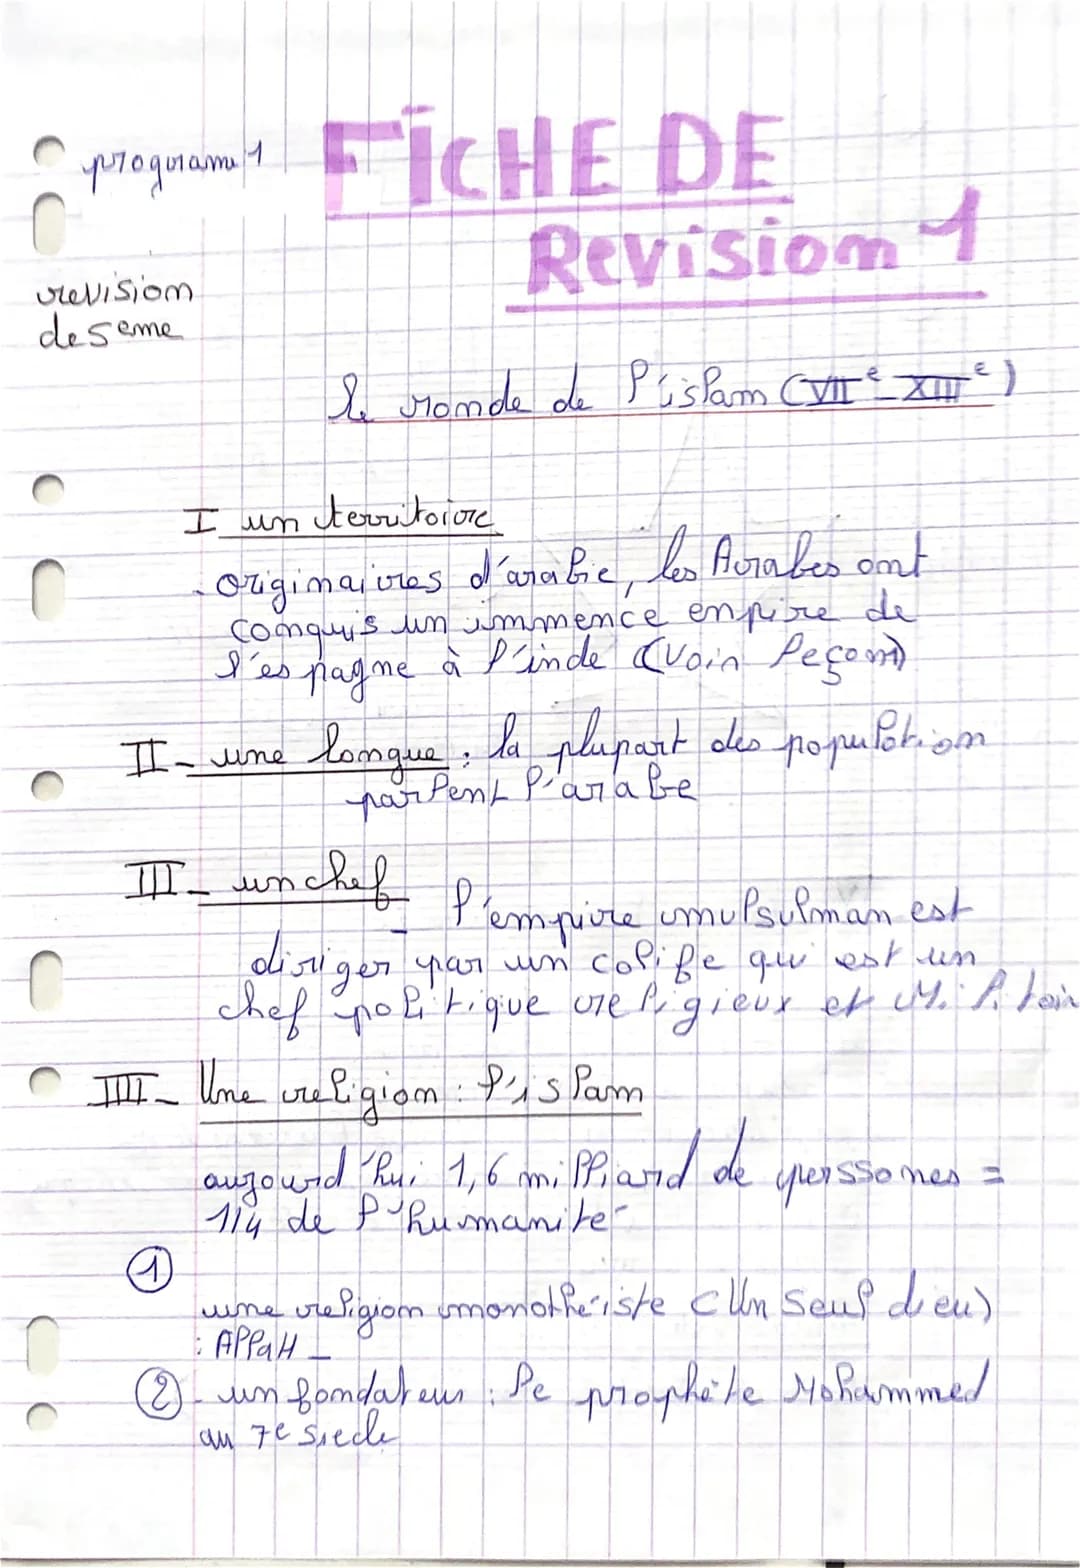 program 1
FICHE DE
Revision 1
revision
de 5eme
le monde de l'islam (VIIe - XIIIe)
I un territoire
- originaires d'arabie, les Arabes ont
conquis un immence enpire de
l'espagne à l'inde (voir leçon)
II - une langue : la plupart des population
parlent l'arabe
III - un chef - l'empire mulsulman est
diriger par un calife qui est un
chef politique religieux et militair
IIII - Une religion : l'islam
aujourd'hui 1,6 milliard de perssones =
1/4 de l'humanite
①
une religion monothéiste (Un seul dieu)
: AllaH -
② - un fondateur : le prophète Mohammed
au 7e siecle